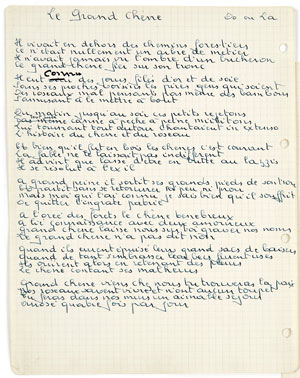 Le Grand Chêne Do ou La
Il vivait en dehors des chemins forestiers
Ce n'était nullement un arbre de métier
Il n'avait jamais vu l'ombre d'un bucheron
Ce grand chêne fier sur son tronc
Il eut connu des jours filés d'or et de soie
Sans ses proches voisins les pires gens qui soient
Des roseaux mal pensants pas même des bambous
S'amusant à le mettre à bout
Du matin jusqu'au soir ces petits rejetons
à peine mirlitons
Lui tournant tout autour chantaient in extenso
L'histoire du chêne et du roseau
Et bien qu'il fût en bois les chênes c'est courant
La fable ne le laissait pas indifférent
Il advint que lasse d'être en butte aux lazzis
Il se résolut à l'exil
A grand peine il sortit ses grands pieds de son trou
Et partit sans se retourner ni peu ni prou
Mais moi qui l'ai connu je sais bien qu'il souffrit
De quitter l'ingrate patrie
A l'orée des forêts le chêne ténébreux
A lié connaissance avec deux amoureux
Grand chêne laisse nous sur toi graver nos noms
Le grand chêne n'a pas dit non
Quand ils eurent épuisé leur grand sac de baisers
Quand de tant s'embrasser leurs becs furent usés
Ils ouïrent alors en retenant des pleurs
Le chêne contant ses malheurs
Grand chêne viens chez nous tu trouveras la paix
Nos roseaux savent vivre et n'ont aucun toupet
Tu feras dans nos murs un aimable séjour
Arrosé quatre fois par jour